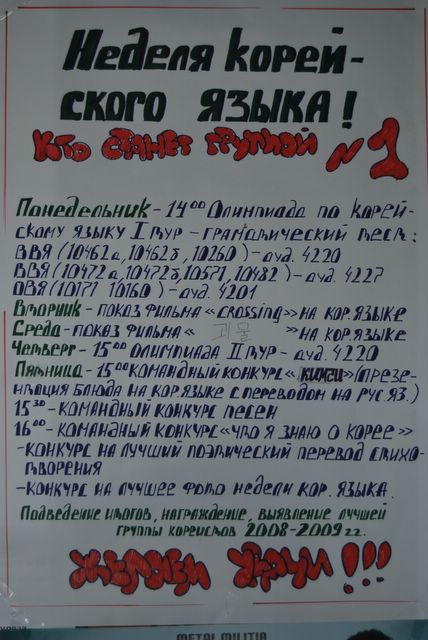 Неделя корей-
ского языка!
Кто станет группой №1
Понедельник - 14⁰⁰ Олимпиада по корей-
скому языку I тур - грамматический тест:
ВВЯ (10462а, 10462б, 10260) - ауд. 4220
ВВЯ (10472а, 10472б, 10571, 10482) - ауд. 4227
ОВЯ (10171 10160) - ауд. 4201
Вторник - показ фильма «crossing» на кор. языке
Среда - показ фильма « 괴물 » на кор. языке
Четверг - 15⁰⁰ олимпиада II тур - ауд. 4220
Пятница - 15⁰⁰ командный конкурс « кимчи » (презе-
нтация блюда на кор. языке с переводом на рус. яз.)
15³⁰ - командный конкурс песен
16⁰⁰ - командный конкурс «что я знаю о Корее»
- конкурс на лучший поэтический перевод стихо-
творения
- конкурс на лучшее фото недели кор. языка.
Подведение итогов, награждение, выявление лучшей
группы корейстов 2008-2009 гг.
Желаем удачи!!!
METAL MILITIA